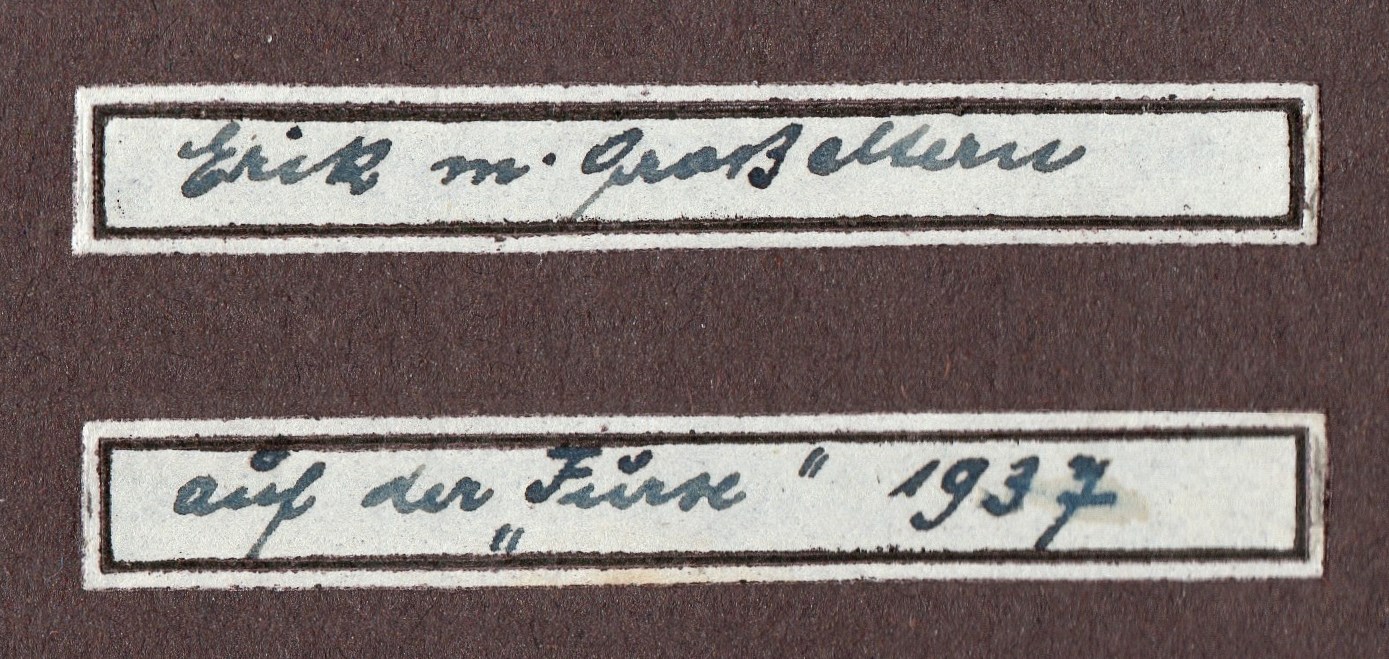 Erik m. Großeltern
auf der „Furse“ 1937